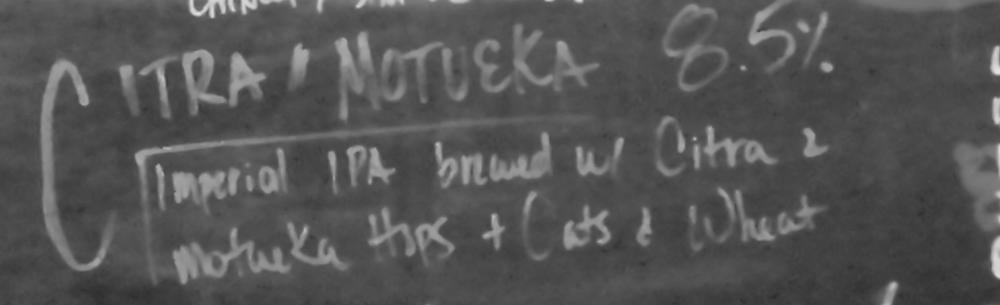 CITRA / MOTUEKA 8.5%
Imperial IPA brewed w/ Citra &
Motueka Hops + Oats & Wheat